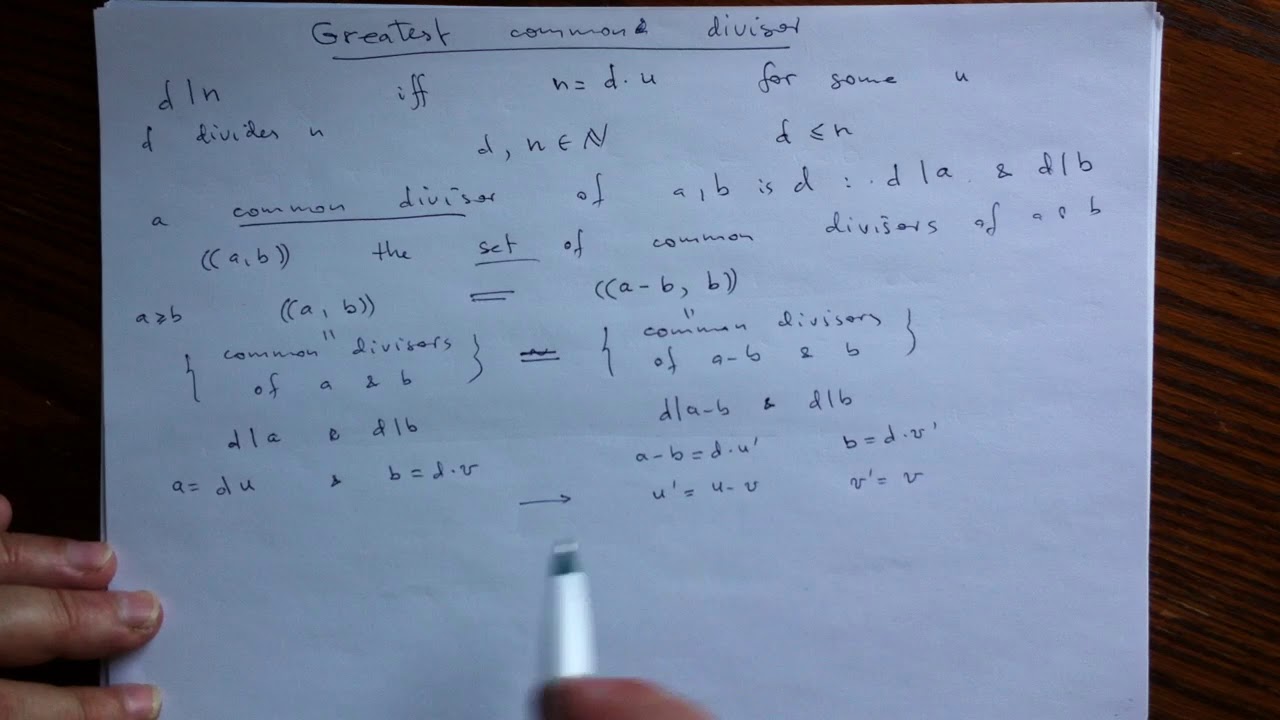 Greatest common divisor
d | n iff n = d · u for some u
d divides n d, n ∈ ℕ d ≤ n
a common divisor of a, b is d : d | a & d | b
((a, b)) the set of common divisors of a & b
a ≥ b ((a, b)) = ((a - b, b))
{ common divisors of a & b } = { common divisors of a - b & b }
d | a & d | b d | a - b & d | b
a = du & b = d · v a - b = d · u' b = d · v'
→ u' = u - v v' = v